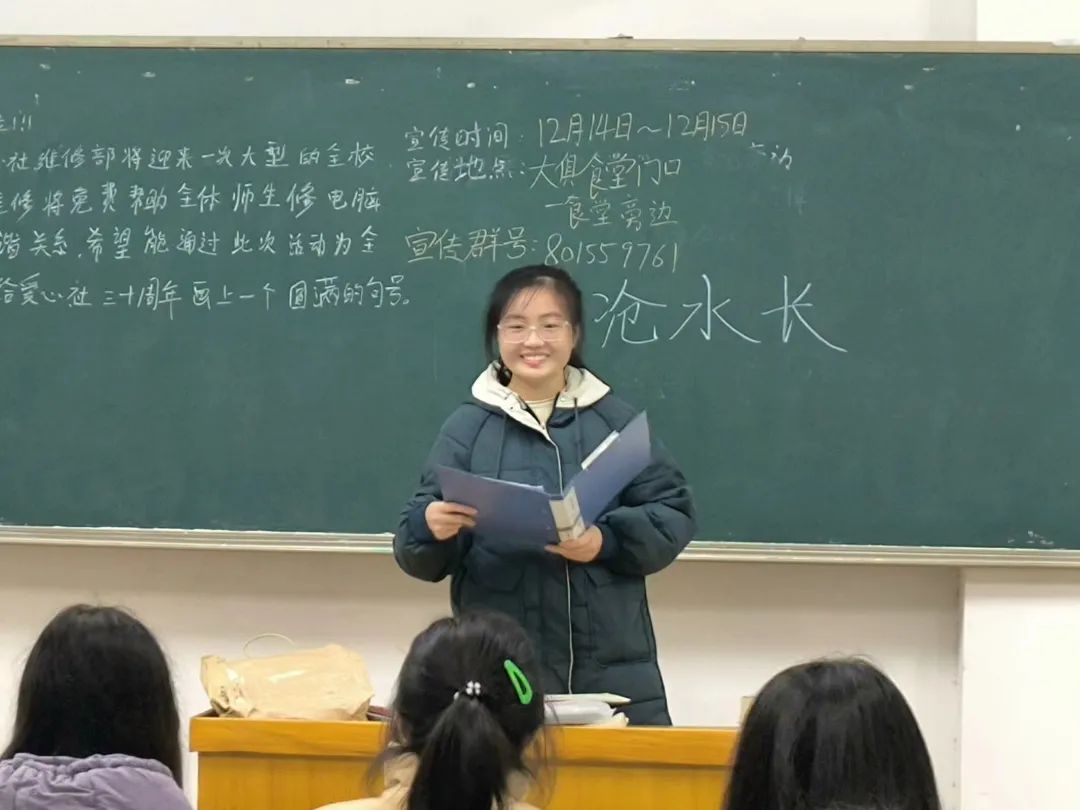 社维修部将迎来一次大型的全校
维修将免费帮助全体师生修电脑
谐关系,希望能通过此次活动为全
给爱心社三十周年画上一个圆满的句号。
宣传时间:12月14日~12月15日
宣传地点:大俱食堂门口
一食堂旁边
宣传群号:801559761
沧水长